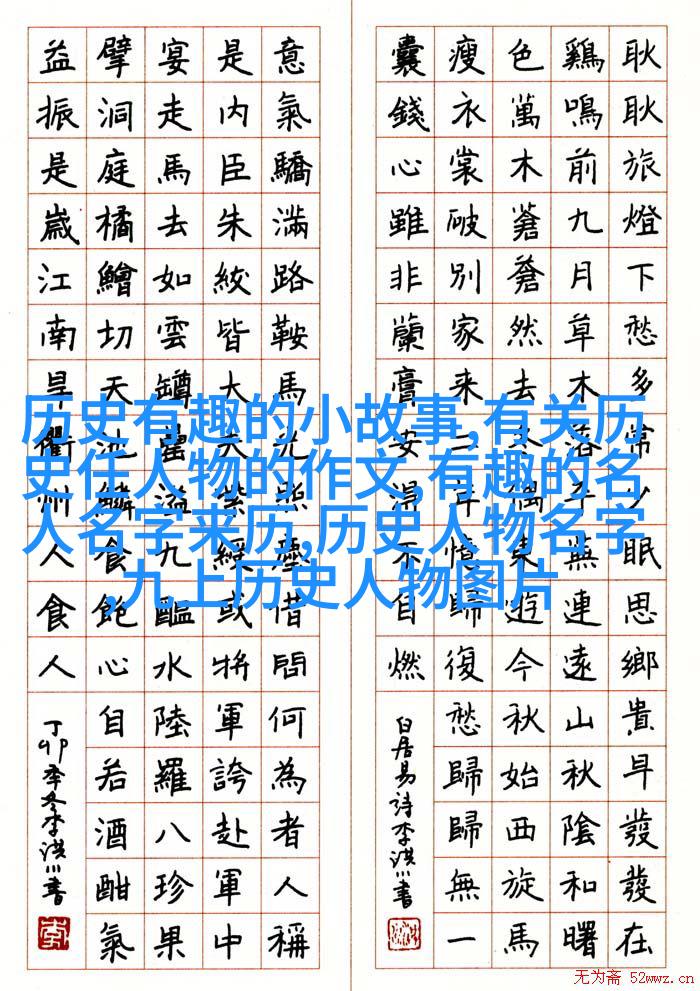 耿耿旅燈下愁多常少眠思鄉貴早發發在
鷄鳴前九月草木落平蕪連遠山秋陰和曙
色萬木蒼蒼然去冬偶東遊今秋始西旋馬
瘦衣裳破別家來二年憶歸復愁歸歸無一
囊錢心雖非蘭膏安得不自燃
白居易詩李洪川書
意氣驕滿路鞍馬光照塵借問何為者人稱
是內臣朱紱皆大夫紫綬或將軍誇赴軍中
宴走馬去如雲罇罍溢九醞水陸羅八珍果
擘洞庭橘鱠切天池鱗食飽心自若酒酣氣
益振是歲江南旱衢州人食人
丁卯季冬李洪川書
历史有趣的小故事,有关历
史任人物的作文,有趣的名
人名字来历,历史人物名字
九上历史人物图片
无为斋 52wwz.cn